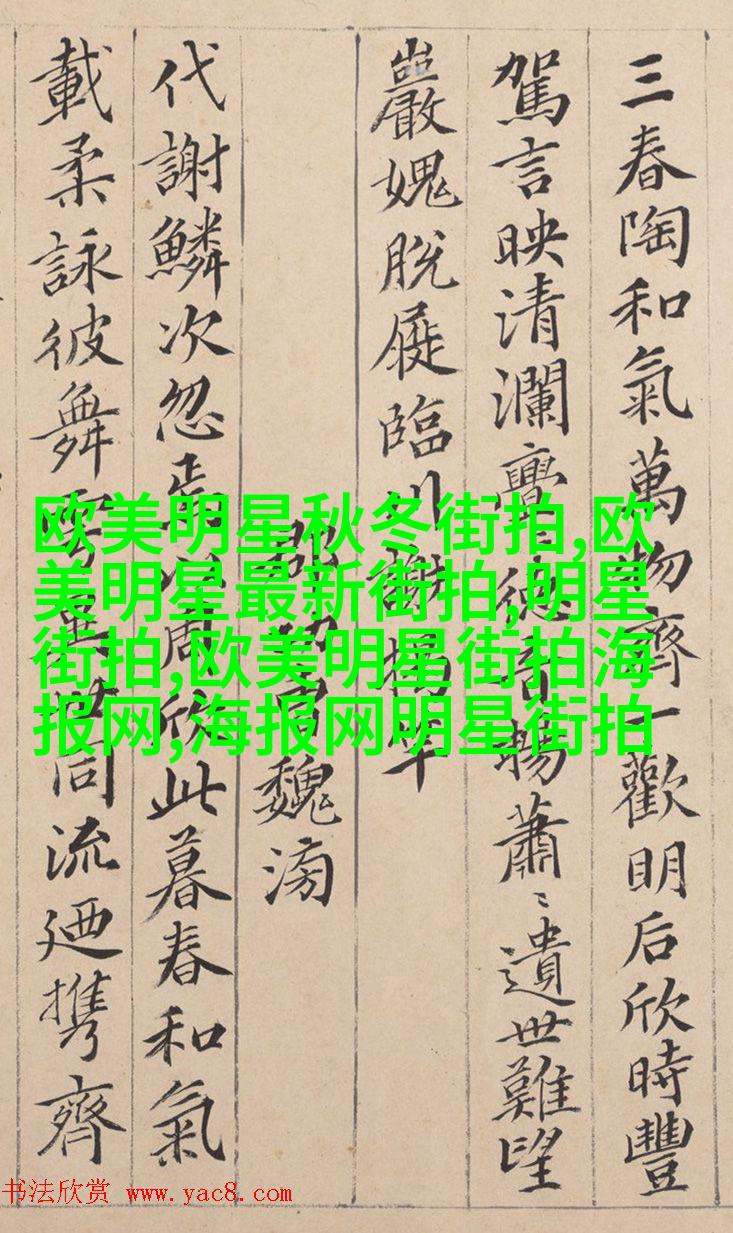 三春陶和氣萬物齊一歡明后欣時豐
駕言映清瀾亹亹德音暢蕭〻遺世難望
巖愧脫屣臨川謝揭竿
郡功曹魏滂
代謝鱗次忽焉以周欣此暮春和氣
載柔詠彼舞雩異世同流廼携齊
欧美明星秋冬街拍,欧
美明星最新街拍,明星
街拍,欧美明星街拍海
报网,海报网明星街拍
书法欣赏 www.yac8.com